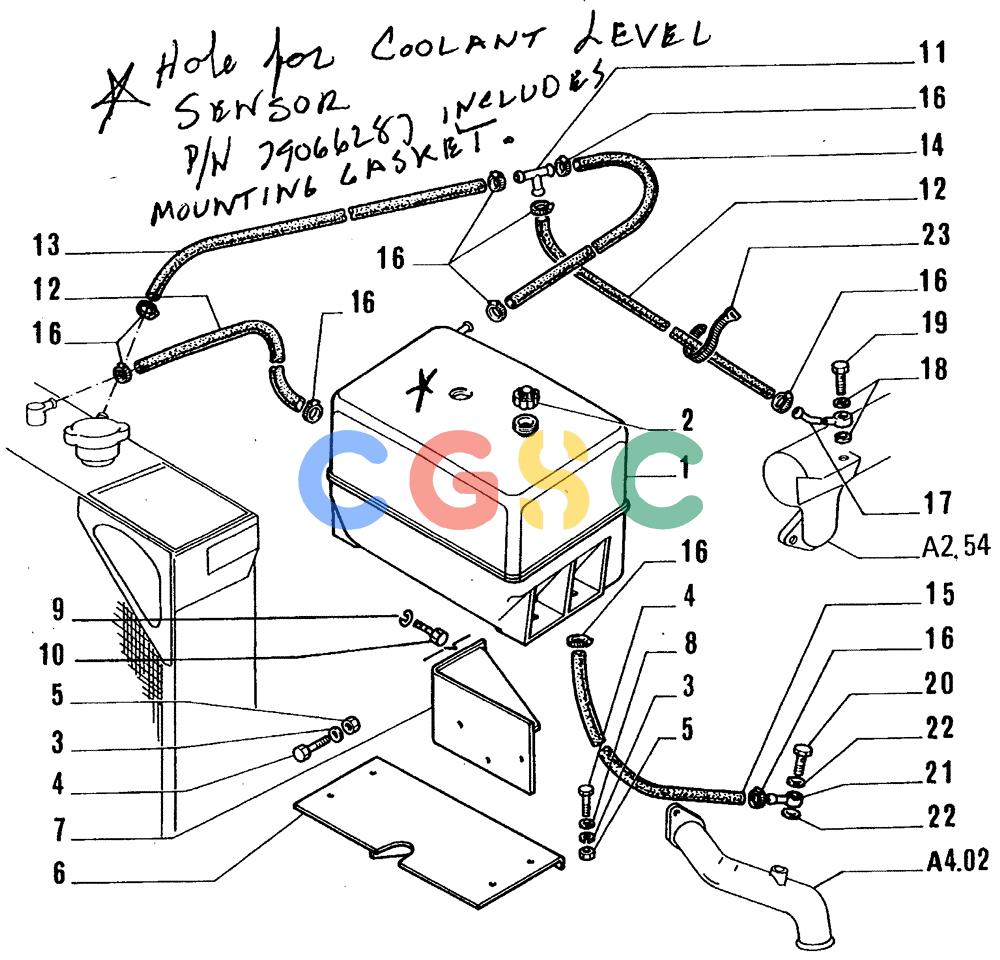 ☆ Hole for COOLANT LEVEL
SENSOR
P/N 79066287 INCLUDES
MOUNTING GASKET.
11
16
14
12
23
16
19
18
13
12
16
16
16
☆
2
1
CGSC
17
A2,54
16
4
8
3
5
15
16
20
22
21
22
A4.02
9
10
5
3
4
7
6